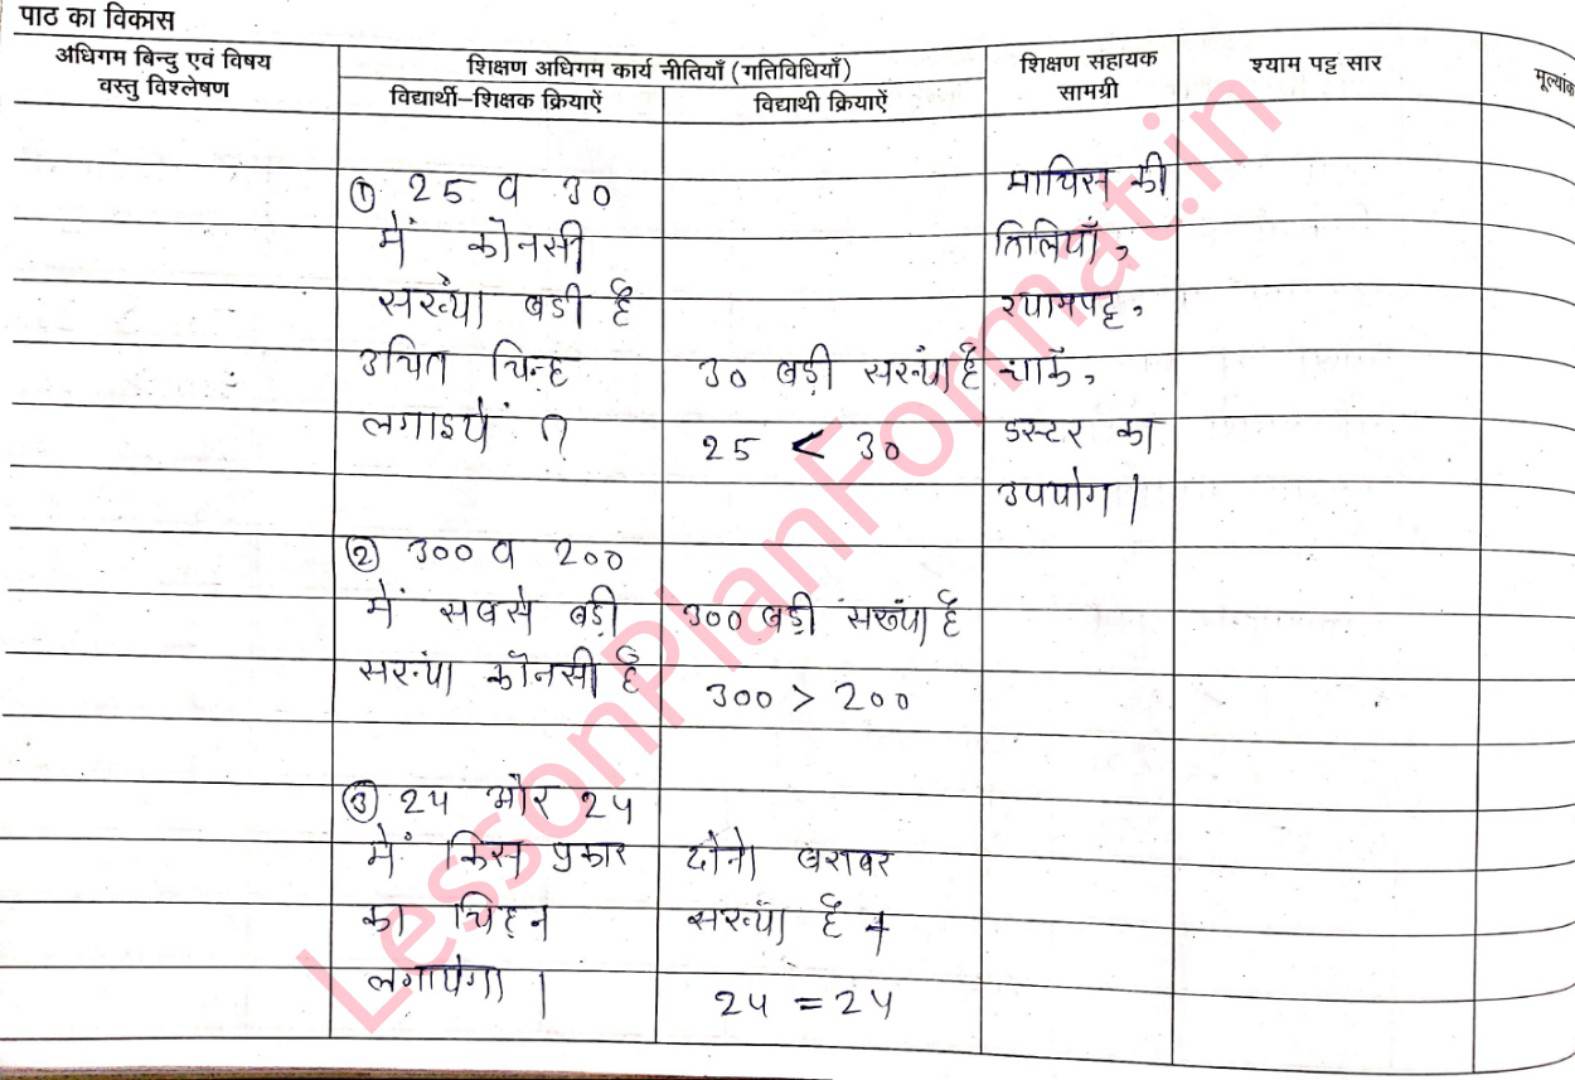 पाठ का विकास
अधिगम बिन्दु एवं विषय
वस्तु विश्लेषण
शिक्षण अधिगम कार्य नीतियाँ (गतिविधियाँ)
विद्यार्थी-शिक्षक क्रियाऐं
विद्याथी क्रियाऐं
शिक्षण सहायक
सामग्री
श्याम पट्ट सार
मूल्यांक
① 25 व 30
में कौनसी
संख्या बडी है
उचित चिन्ह
लगाइये ?
30 बड़ी संख्या है
25 < 30
माचिस की
तिलियाँ,
श्यामपट्ट,
चाक,
डस्टर का
उपयोग।
② 300 व 200
में सबसे बड़ी
संख्या कौनसी है
300 बड़ी संख्या है
300 > 200
③ 24 और 24
में किस प्रकार
का चिह्न
लगायेगा।
दोनो बराबर
संख्या है
24 = 24
LessonPlanFormat.in